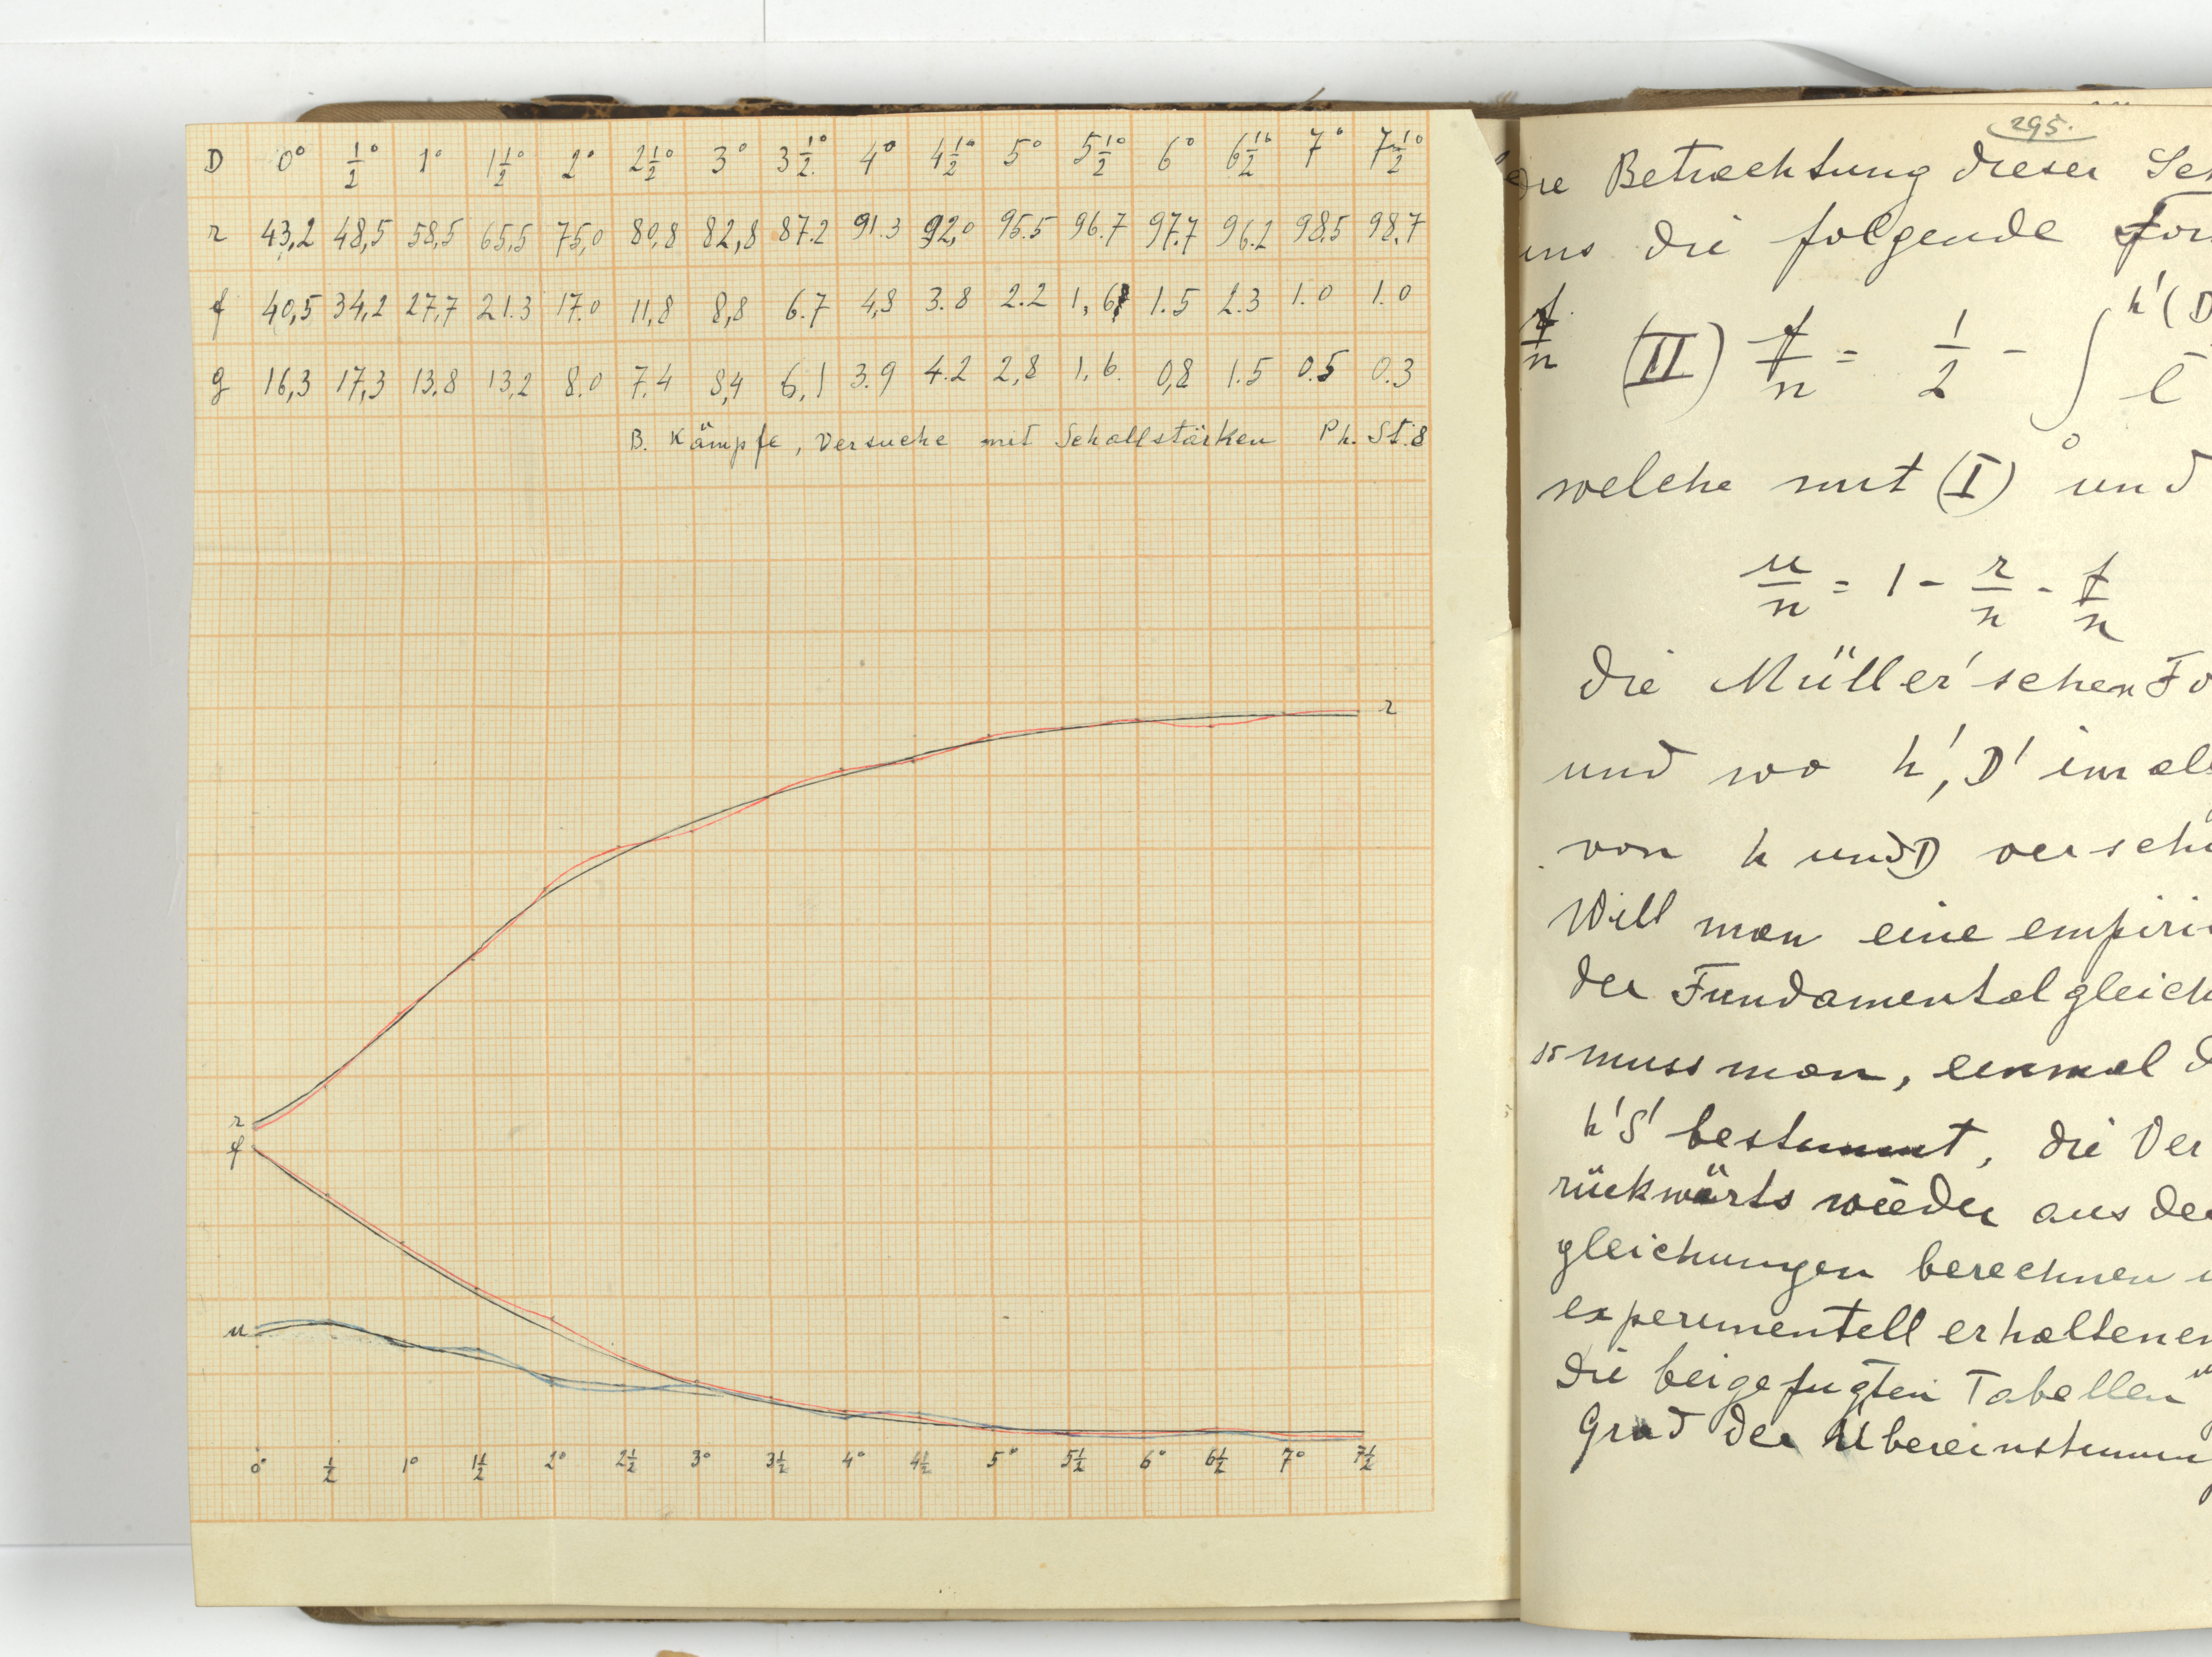 D 0° ½° 1° 1½° 2° 2½° 3° 3½° 4° 4½° 5° 5½° 6° 6½° 7° 7½°
r 43,2 48,5 58,5 65,5 75,0 80,8 82,8 87.2 91.3 92,0 95.5 96.7 97.7 96.2 98.5 98.7
f 40,5 34,2 27,7 21.3 17.0 11,8 8,8 6.7 4,8 3.8 2.2 1,6 1.5 2.3 1.0 1.0
g 16,3 17,3 13.8 13,2 8.0 7.4 8,4 6,1 3.9 4.2 2,8 1,6. 0,8 1.5 0.5 0.3
B. Kämpfe, Versuche mit Schallstärken Ph. St. 8
r
r
f
u
0° ½ 1° 1½ 2° 2½ 3° 3½ 4° 4½ 5° 5½ 6° 6½ 7° 7½
295.
die Betrachtung dieser
uns die folgende
(II) f/n = 1/2 - ∫ h'(D
0
welche mit (I) und
u/n = 1 - r/n - f/n
die Müller'schen Fo
und wo h', D' im al
von h und D versch
Will man eine empiri
der Fundamentalgleich
so muss man, einmal d
h'S' bestimmt, die Ver
rückwärts wieder aus de
gleichungen berechnen
experimentell erhaltenen
die beigefügten Tabellen
Grad der Übereinstimmun